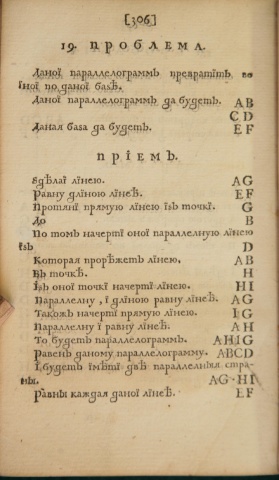 [306]
19. ПРОБЛЕМА.
Даної параллелограммъ превратїть во
їної по даної базѣ.
Даної параллелограммъ да будетъ. AB
CD
Даная база да будетъ. EF
ПРЇЕМЪ.
Ѕдѣлаї лїнею. AG
Равну длїною лїнеѣ. EF
Протянї прямую лїнею їзъ точкї. G
До B
По томъ начертї оної параллелную лїнею
їзъ D
Которая прорѣжетъ лїнею. AB
Въ точкѣ. H
Їзъ оної точкї начертї лїнею. HI
Параллелну, ї длїною равну лїнеѣ. AG
Такожъ начертї прямую лїнею. IG
Параллелну ї равну лїнеѣ. AH
То будетъ параллелограммъ. AHIG
Равенъ даному параллелограмму. ABCD
Ї будетъ їмѣтї двѣ параллелныя стра-
ны. AG·HI
Равны каждая даної лїнеѣ. EF